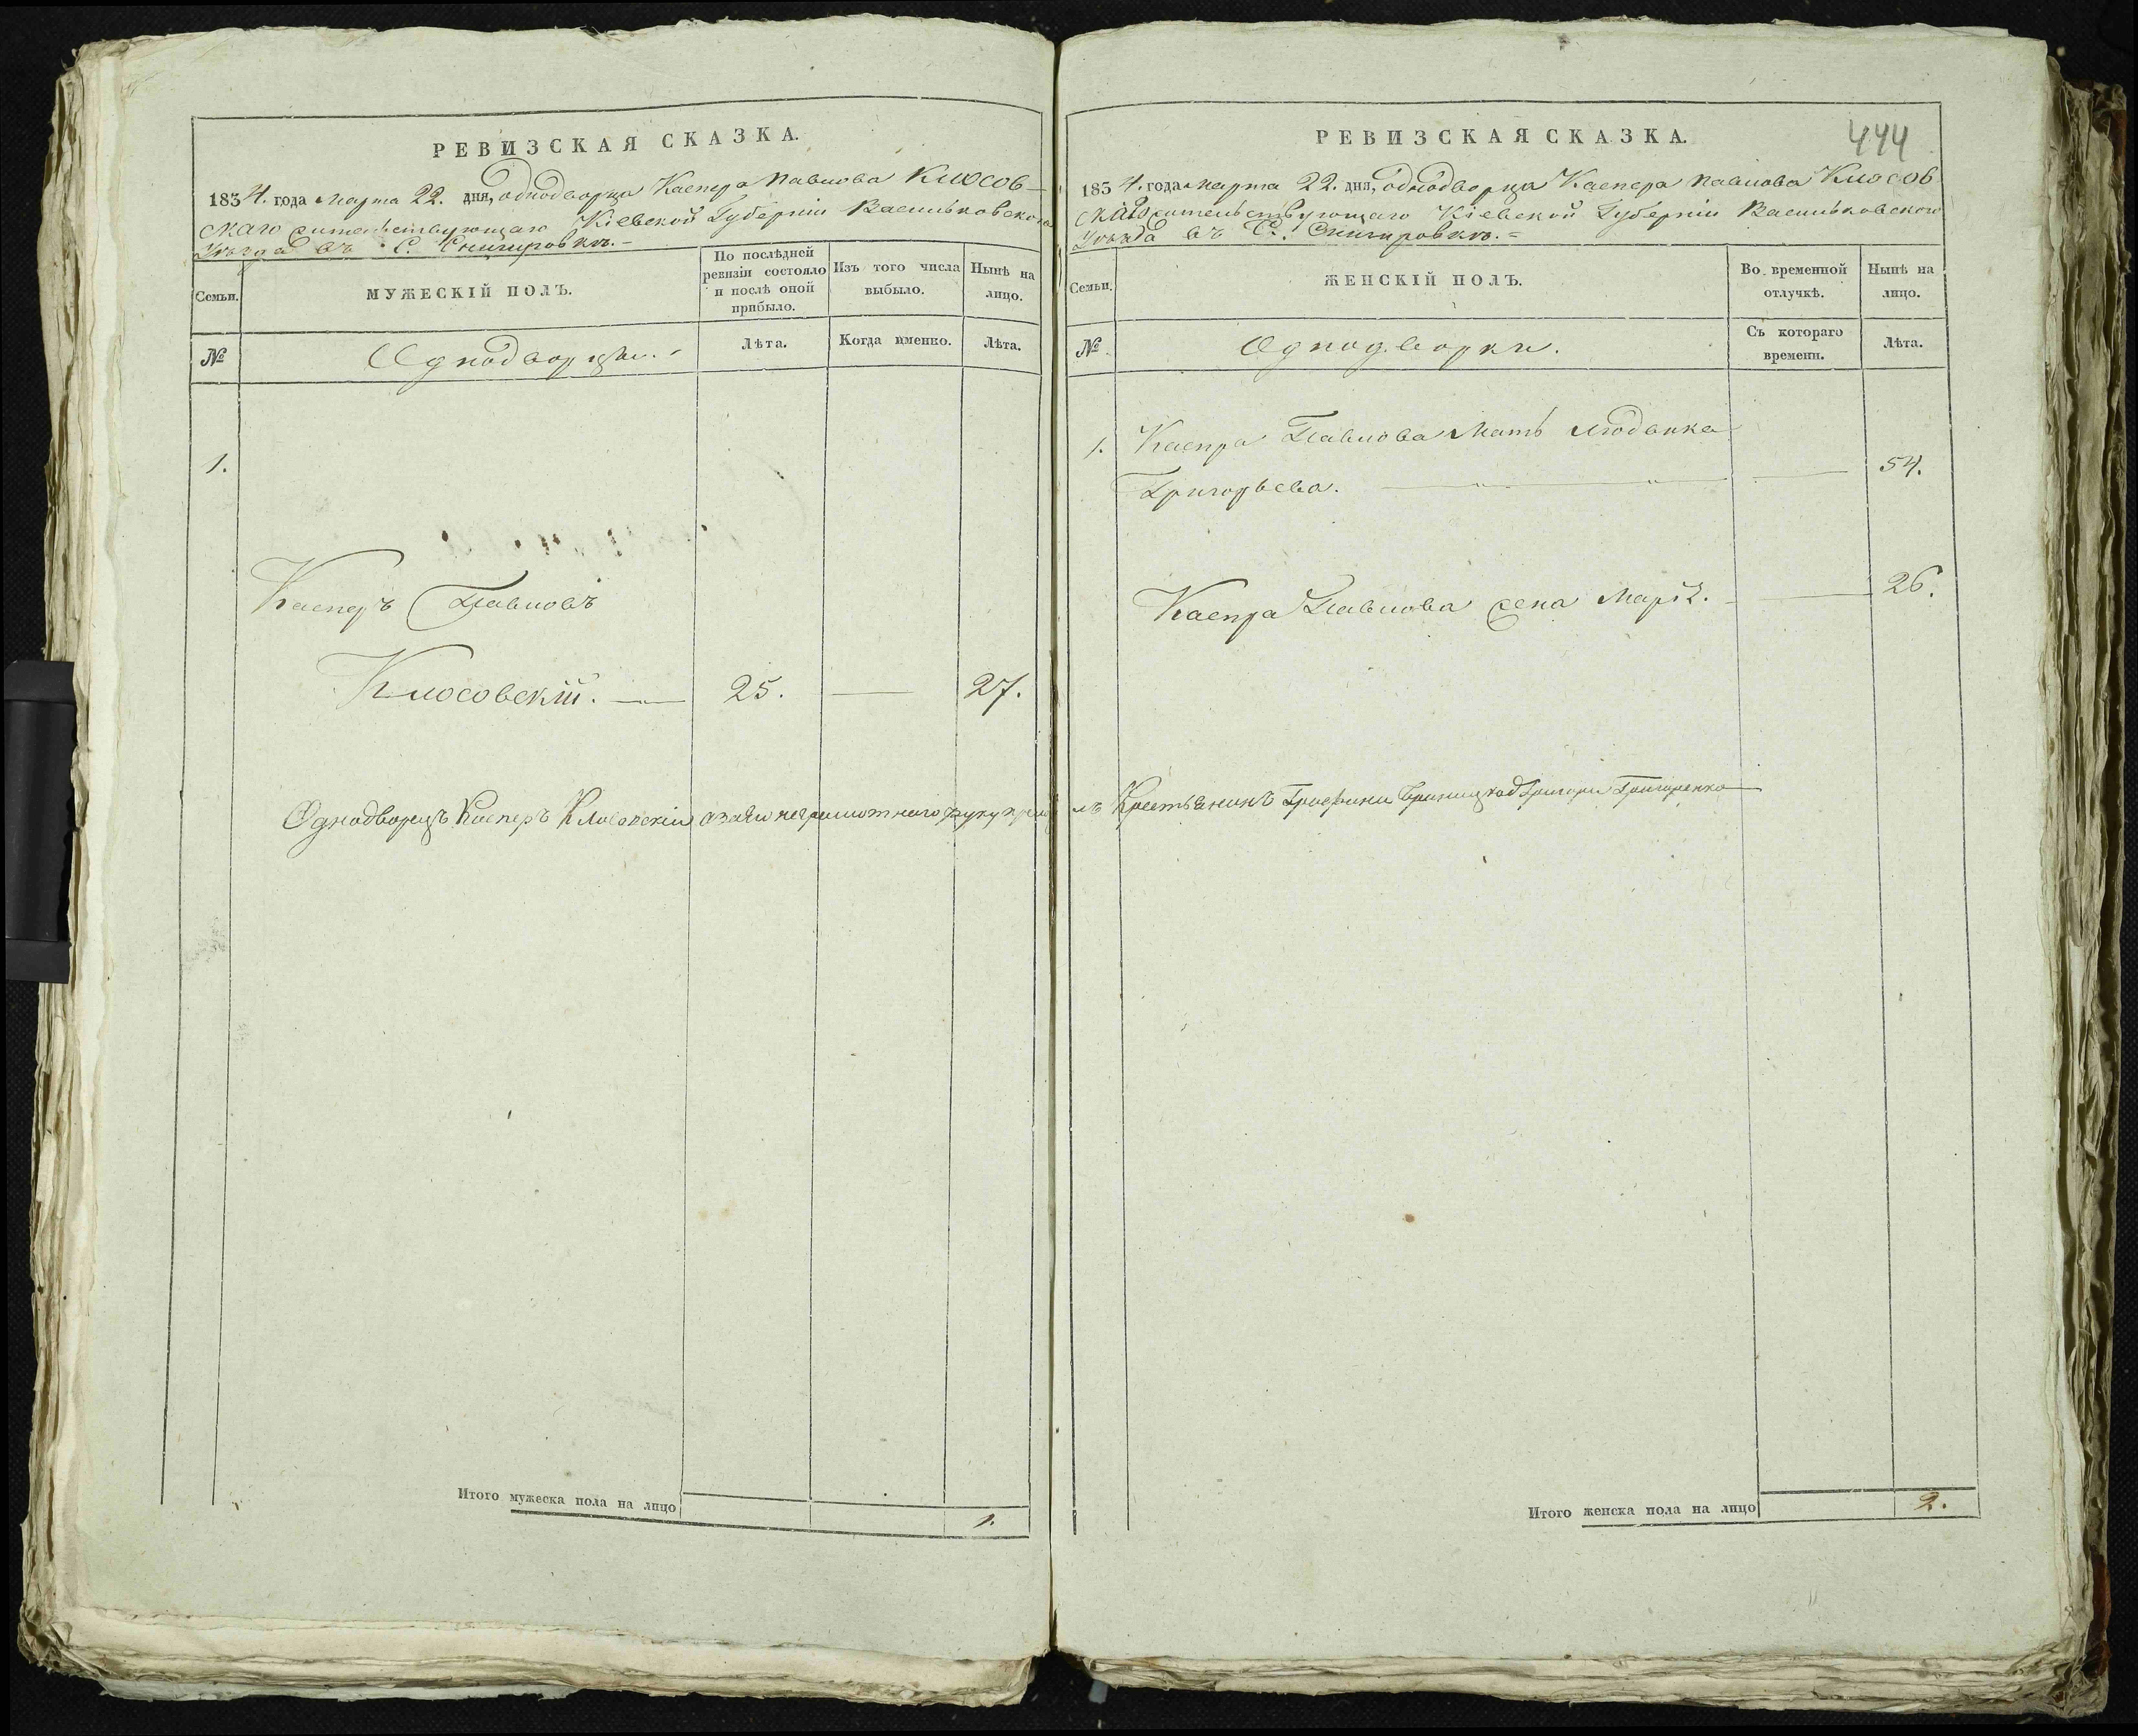 РЕВИЗСКАЯ СКАЗКА.
1834. года марта 22. дня, однодворца Каспера Павлова Клосов-
скаго жительствующаго Кіевской Губерніи Васильковского
Уѣзда въ С. Снигировкѣ.
Семьи.
МУЖЕСКІЙ ПОЛЪ.
По послѣдней ревизіи состояло и послѣ оной прибыло.
Изъ того числа выбыло.
Нынѣ на лицо.
№
Однодворцы.
Лѣта.
Когда именно.
Лѣта.
1.
Касперъ Павловъ
Клосовскій. — 25. — 27.
Однодворецъ Касперъ Клосовскій а за его неграмотного руку прило
Итого мужеска пола на лицо 1.
444
РЕВИЗСКАЯ СКАЗКА.
1834. года марта 22. дня, однодворца Каспера Павлова Клосов
скаго жительствующаго Кіевской Губерніи Васильковского
Уѣзда въ С. Снигировкѣ.
Семьи.
ЖЕНСКІЙ ПОЛЪ.
Во временной отлучкѣ.
Нынѣ на лицо.
№
Однодворки.
Съ котораго времени.
Лѣта.
1. Каспра Павлова мать Людвика
Григорьева. — 54.
Каспра Павлова жена Марія. — 26.
лъ Крестьянинъ Григори Григоренко
Итого женска пола на лицо 2.